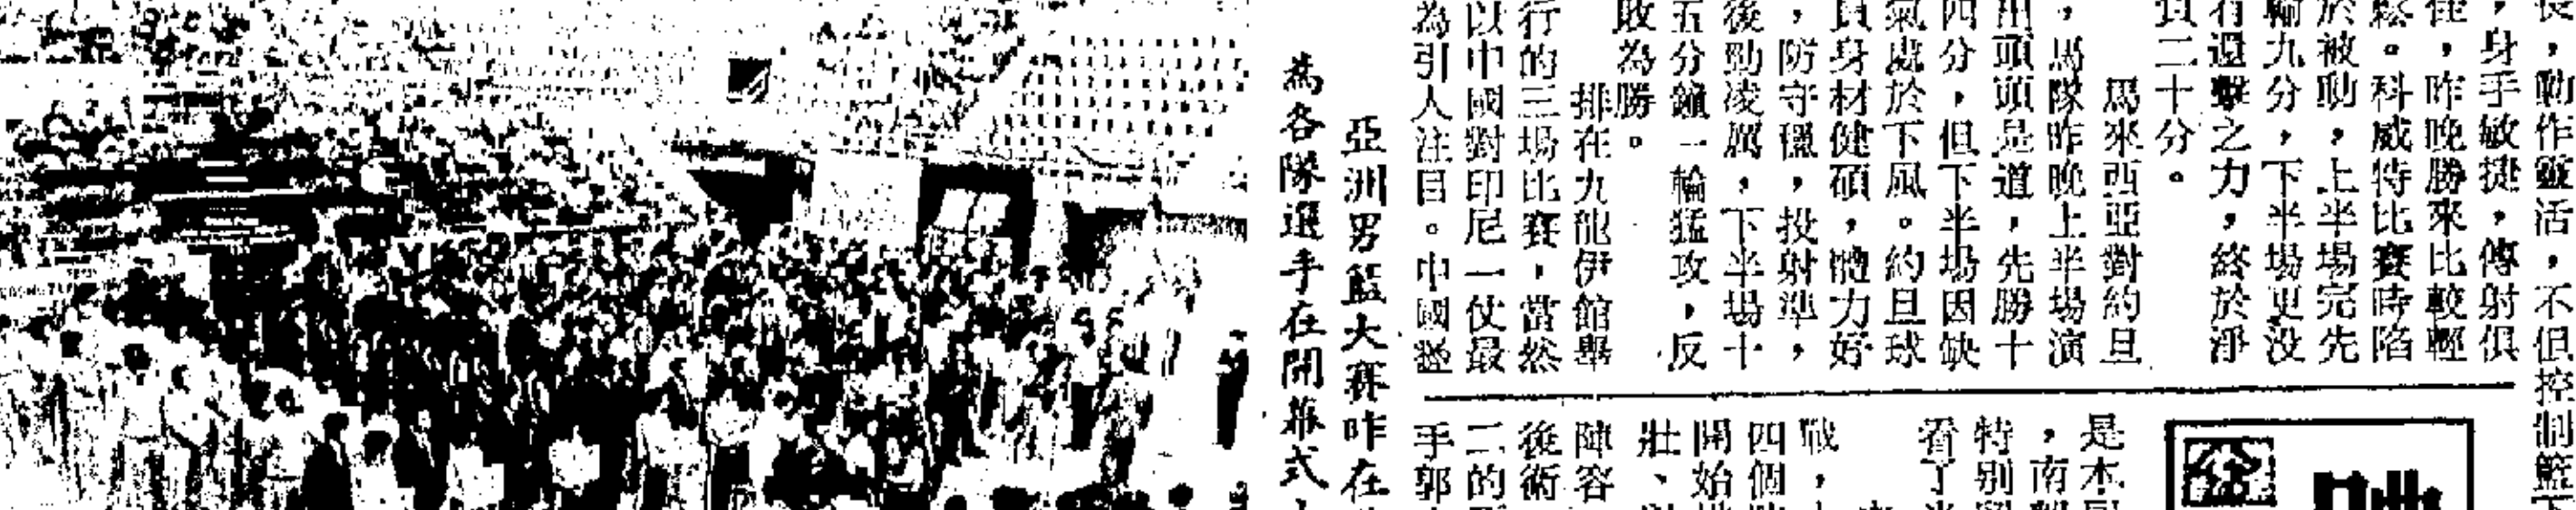 長，動作靈活，不但控個籃下
，身手敏捷，傳射俱
佳，昨晚勝來比較輕
鬆。科威特比賽時陷
於被動，上半場完先
輸九分，下半場更没
有還擊之力，終於淨
負二十分。
馬來西亞對約旦
，馬隊昨晚上半場演
出頭頭是道，先勝十
四分，但下半場因缺
氣處於下風。約旦球
員身材健碩，體力好
，防守穩，投射準，
後勁凌厲，下半場十
五分鐘一輪猛攻，反
敗為勝。
排在九龍伊館舉
行的三場比賽，當然
以中國對印尼一仗最
為引人注目。中國
亞洲男籃大賽昨在
為各隊選手在開幕式
是木
，南
特别
看了
戰，
四個
開始
壯、
陣容
後衛
二的
手郭